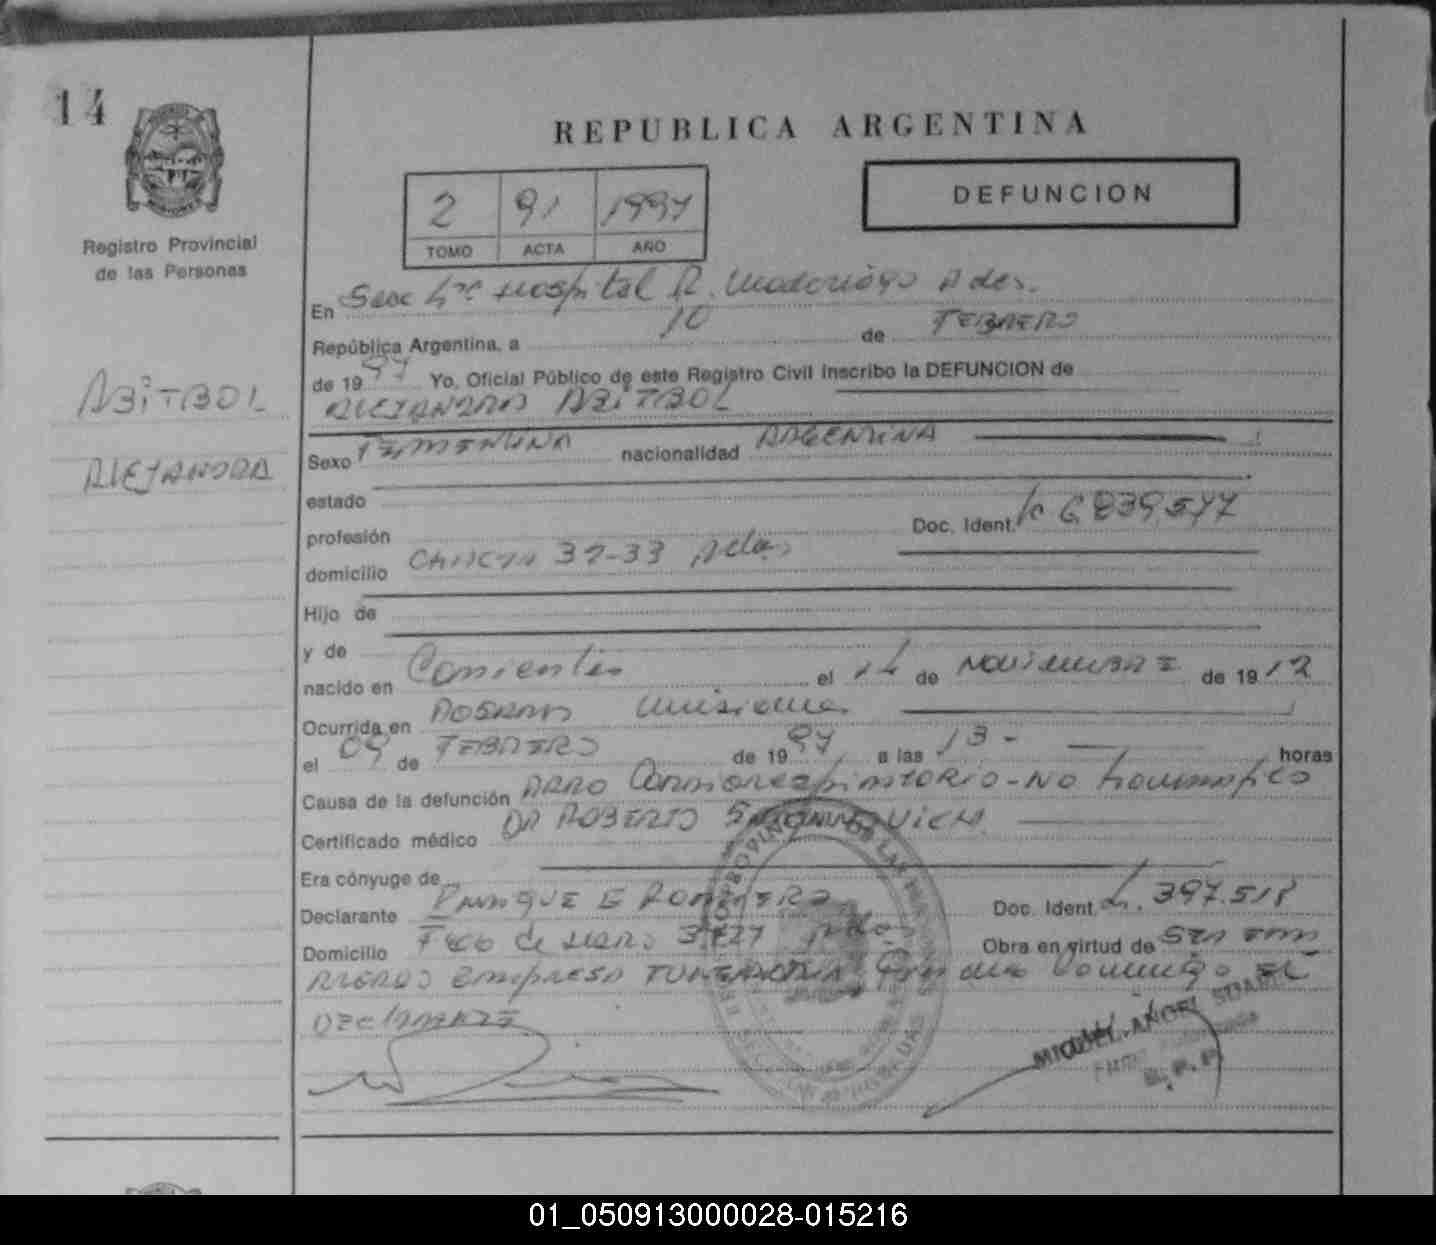 14
REPUBLICA ARGENTINA
2 91 1997
TOMO ACTA AÑO
DEFUNCION
Registro Provincial
de las Personas
ABITBOL
ALEJANDRA
En Secc Hospital R. Madariaga Pdas.
República Argentina, a 10 de FEBRERO
de 1997 Yo, Oficial Público de este Registro Civil inscribo la DEFUNCION de
ALEJANDRA ABITBOL
Sexo FEMENINA nacionalidad ARGENTINA
estado
profesión Doc. Ident. 6839577
domicilio 32-33 Pdas
Hijo de
y de
nacido en Corrientes el de NOVIEMBRE de 1912
Ocurrida en POSADAS Misiones
el 09 de FEBRERO de 1997 a las 13- horas
Causa de la defunción PARO Cardiorespiratorio-No traumatico
Certificado médico DR ROBERTO
Era cónyuge de
Declarante E Doc. Ident. 397.518
Domicilio Fco de Haro 3727 Pdas Obra en virtud de SER
EMPRESA EL
DECLARANTE
MIGUEL ANGEL SUAREZ
R.P.P.
01_050913000028-015216